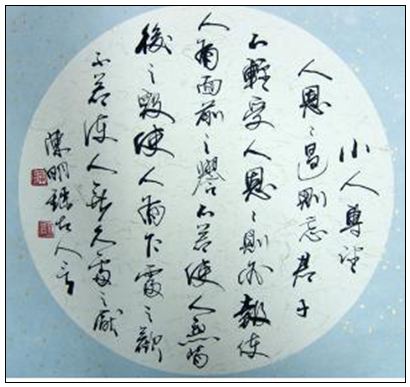 小人專望
人恩〻過則忘君子
不輕受人恩〻則必報使
人有面前之譽不若使人無背
後之毀使人有乍處之歡
不若使人無久處之厭
陳明 古人言